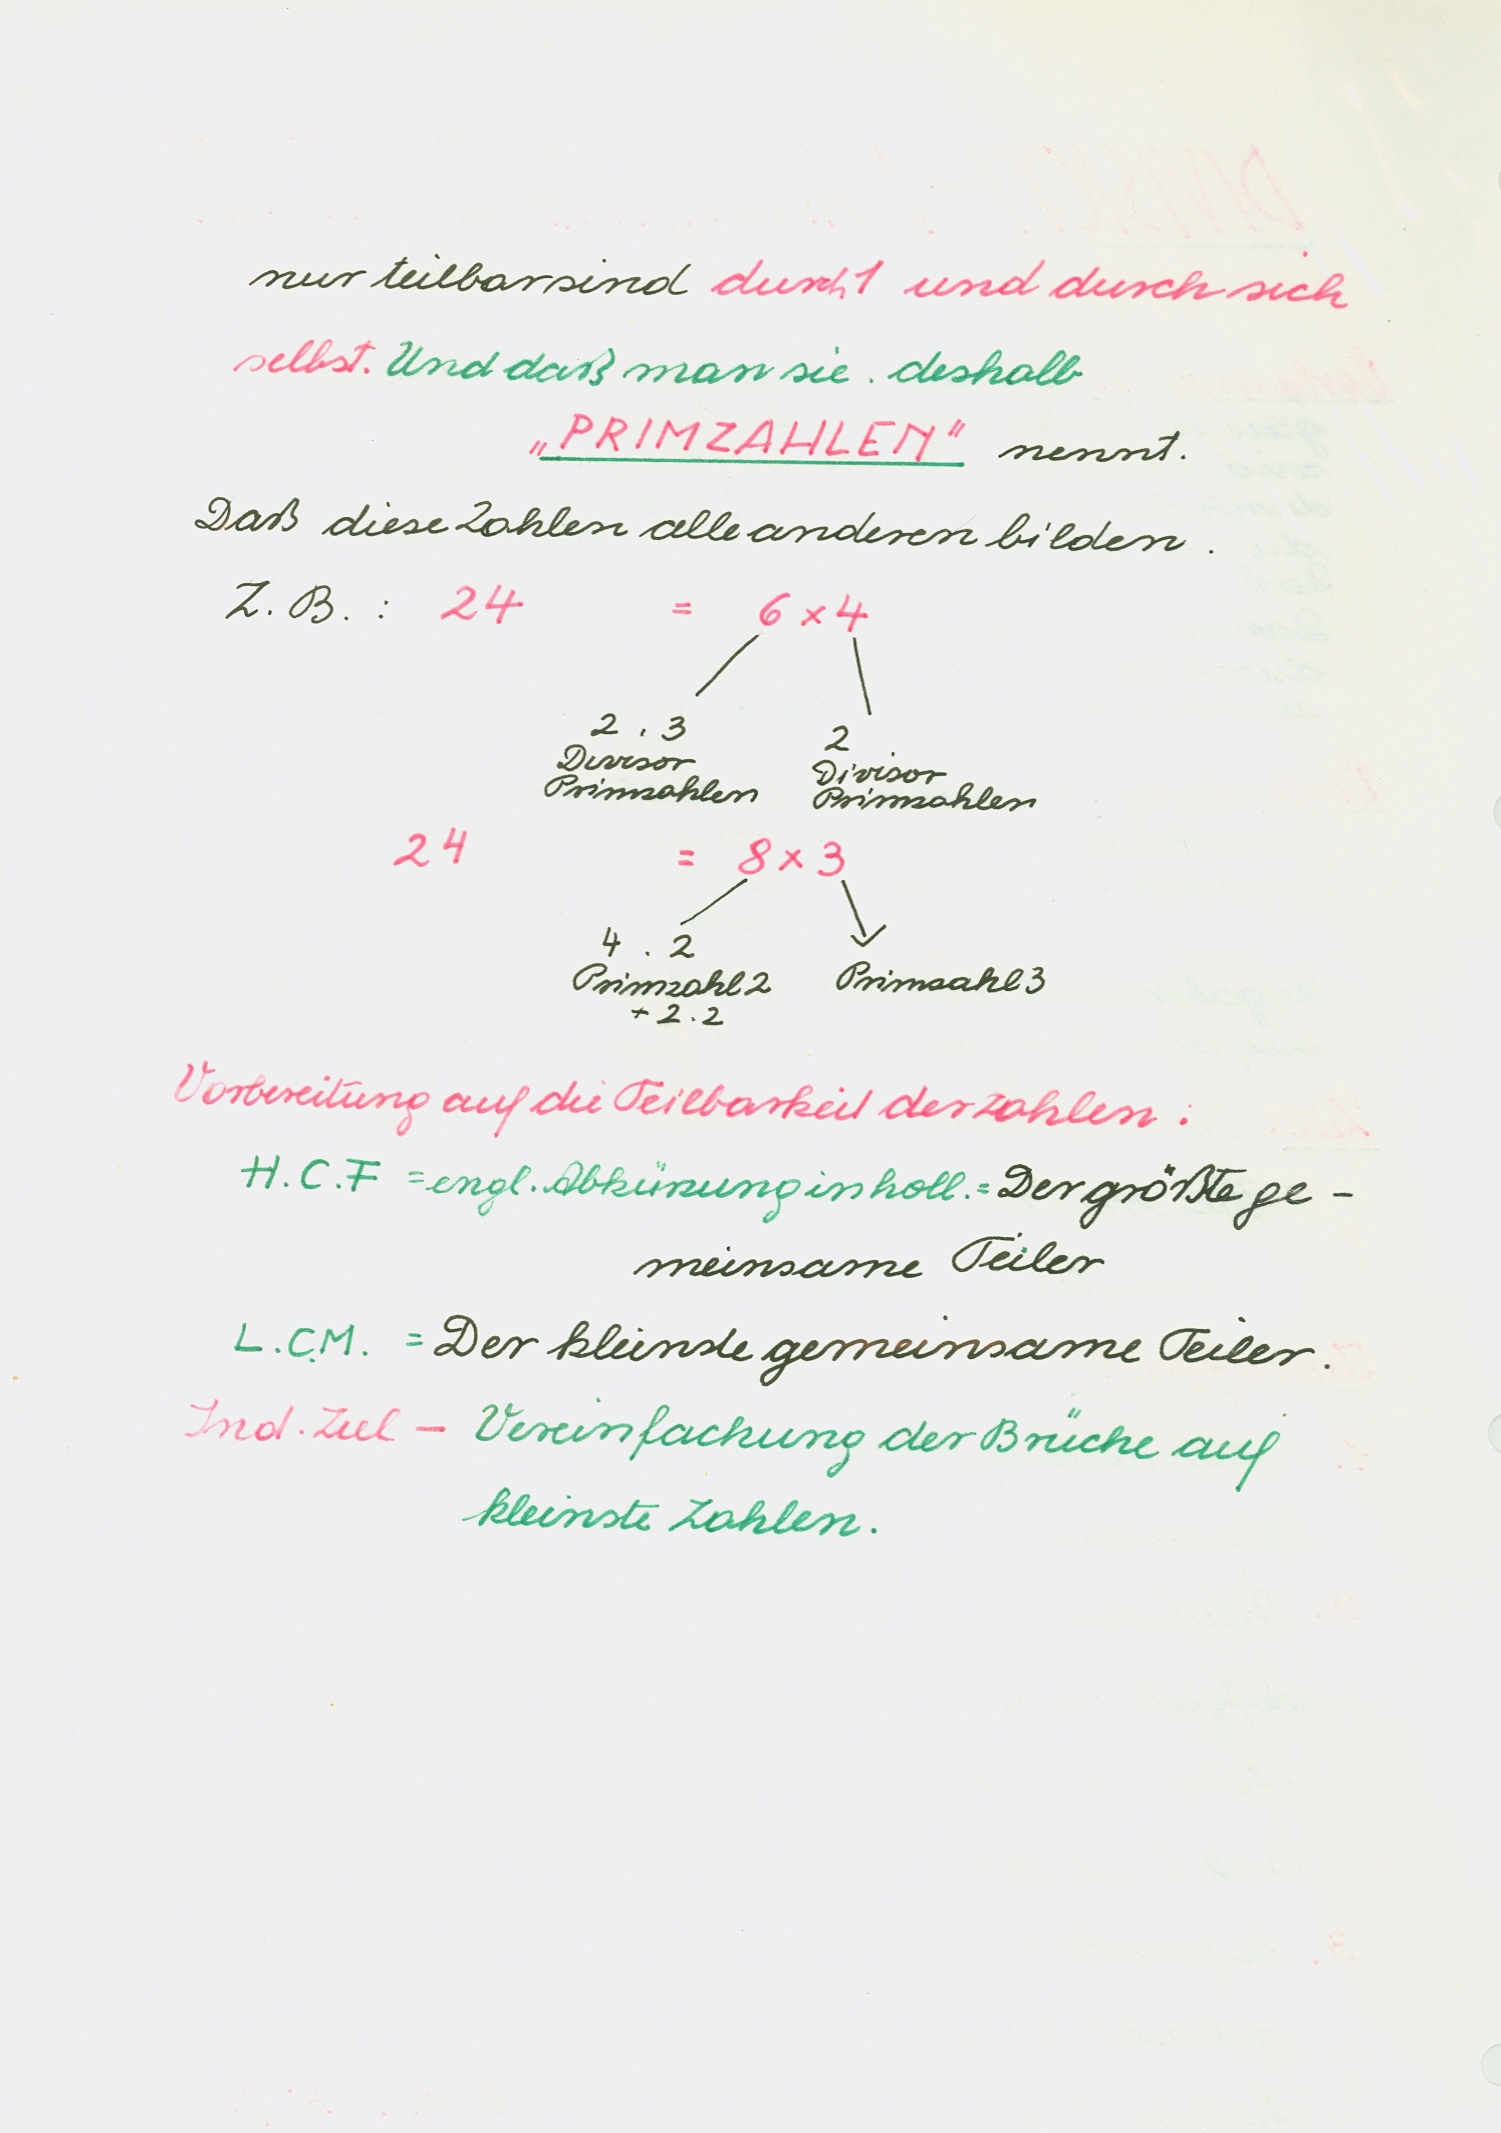 nur teilbar sind durch 1 und durch sich
selbst. Und daß man sie deshalb
„PRIMZAHLEN" nennt.
Daß diese Zahlen alle anderen bilden.
Z.B.: 24 = 6 x 4
2 . 3 2
Divisor Divisor
Primzahlen Primzahlen
24 = 8 x 3
4 . 2
Primzahl 2 Primzahl 3
+ 2.2
Vorbereitung auf die Teilbarkeit der Zahlen:
H.C.F = engl. Abkürzung in holl. = Der größte ge-
meinsame Teiler
L.C.M. = Der kleinste gemeinsame Teiler.
Ind. Ziel - Vereinfachung der Brüche auf
kleinste Zahlen.